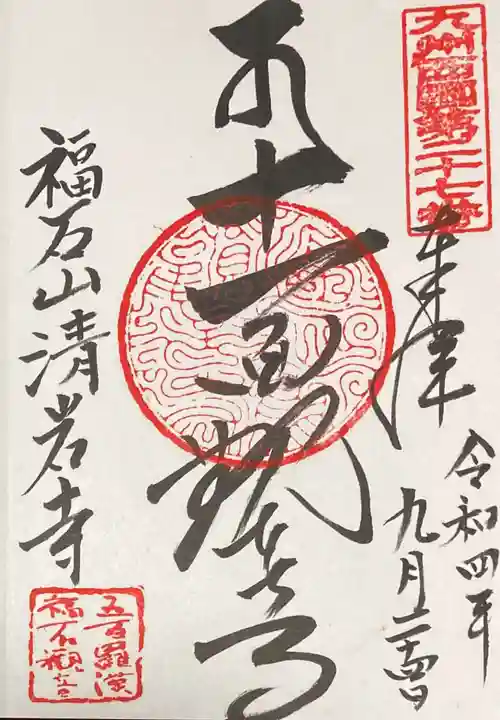 九州西国第二十七番
奉拝
令和四年
九月二十四日
十一面観世音
福石山清岩寺
五百羅漢
福石観音